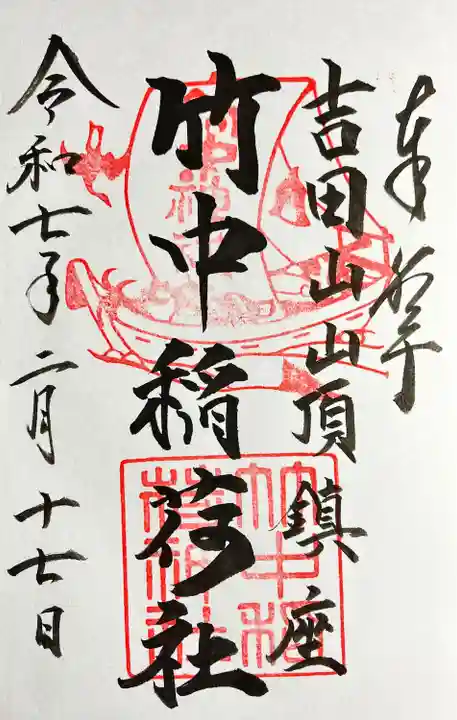 奉拝
吉田山山頂鎮座
竹中稲荷社
令和七年二月十七日